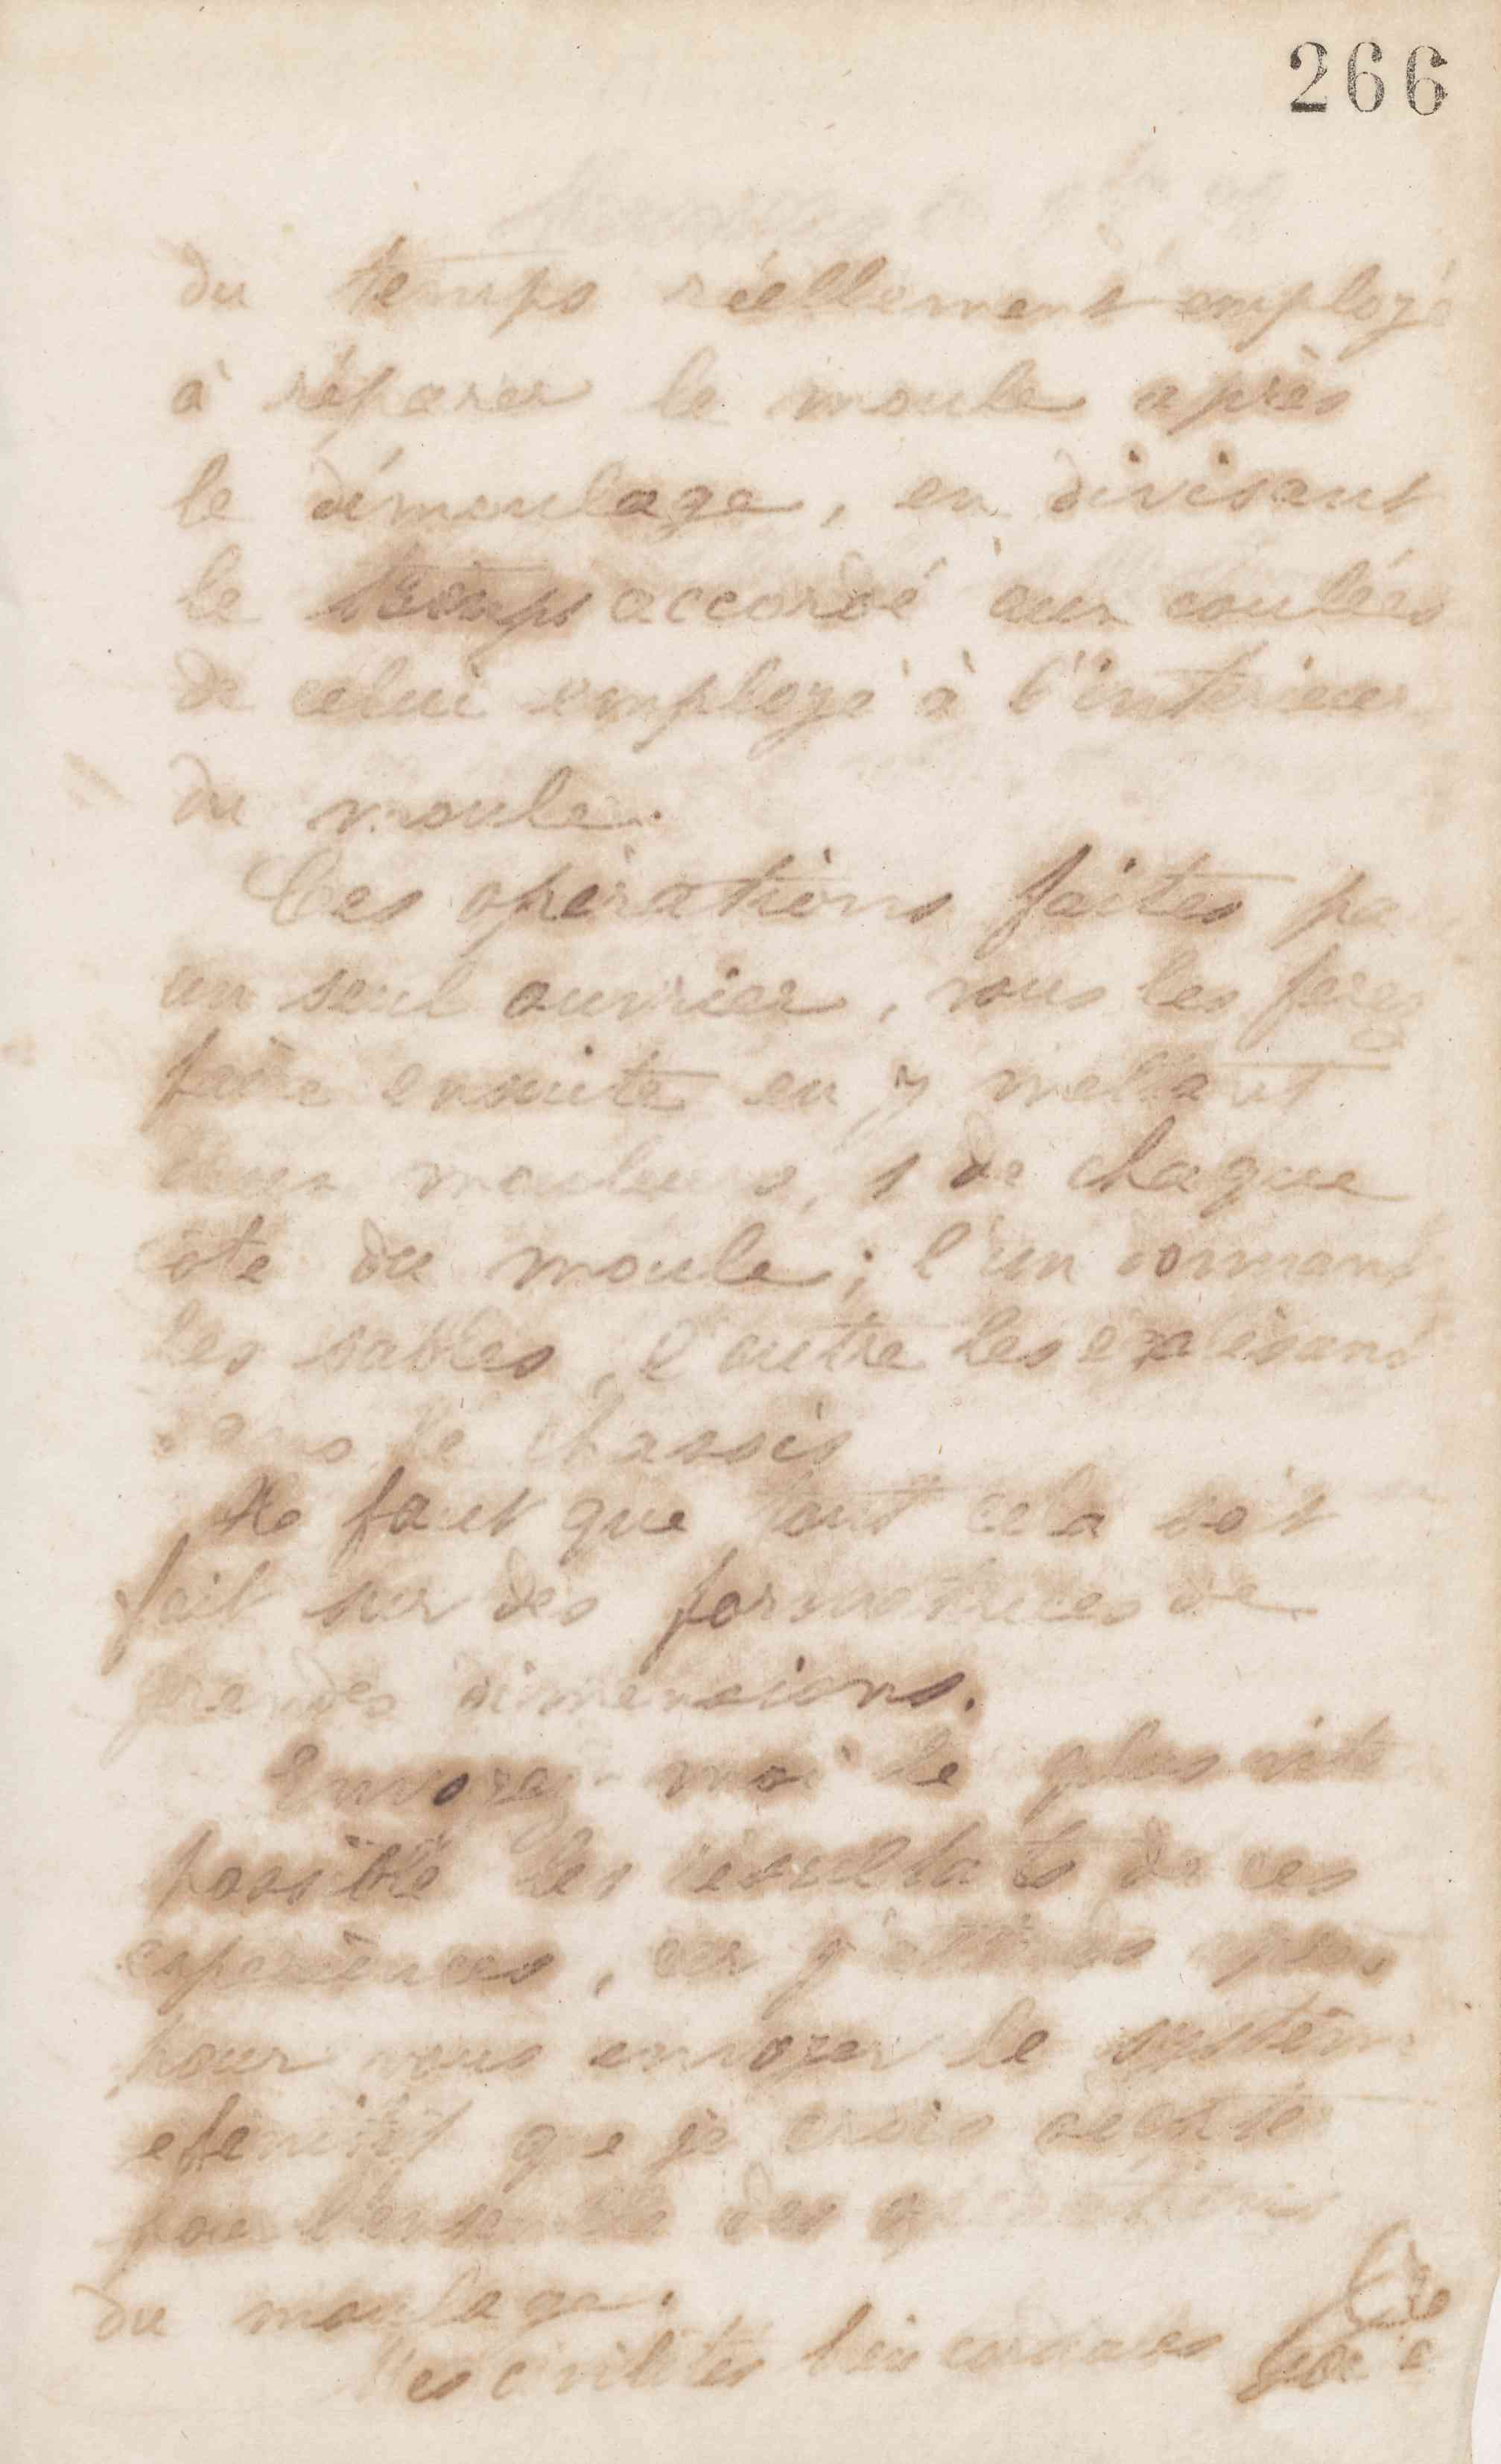 266
du temps réellement employé
à réparer le moule après
le démoulage, en divisant
le temps accordé aux coulées
de celui employé à l'intérieur
du moule.
Ces opérations faites pa
un seul ouvrier, vous les ferez
faire ensuite en y mettant
deux mouleurs, 1 de chaque
côté du moule; l'un donnant
les sables, l'autre les égalisant
dans le chassis
Il faut que tout cela soit
fait sur des formatrices de
grandes dimensions.
Envoyez-moi le plus vite
possible les résultats de ces
expériences, car j'attends
pour vous envoyer le systèm
que je crois
pour l'ensemble des opérations
du moulage.
Mes civilités bien cordiales